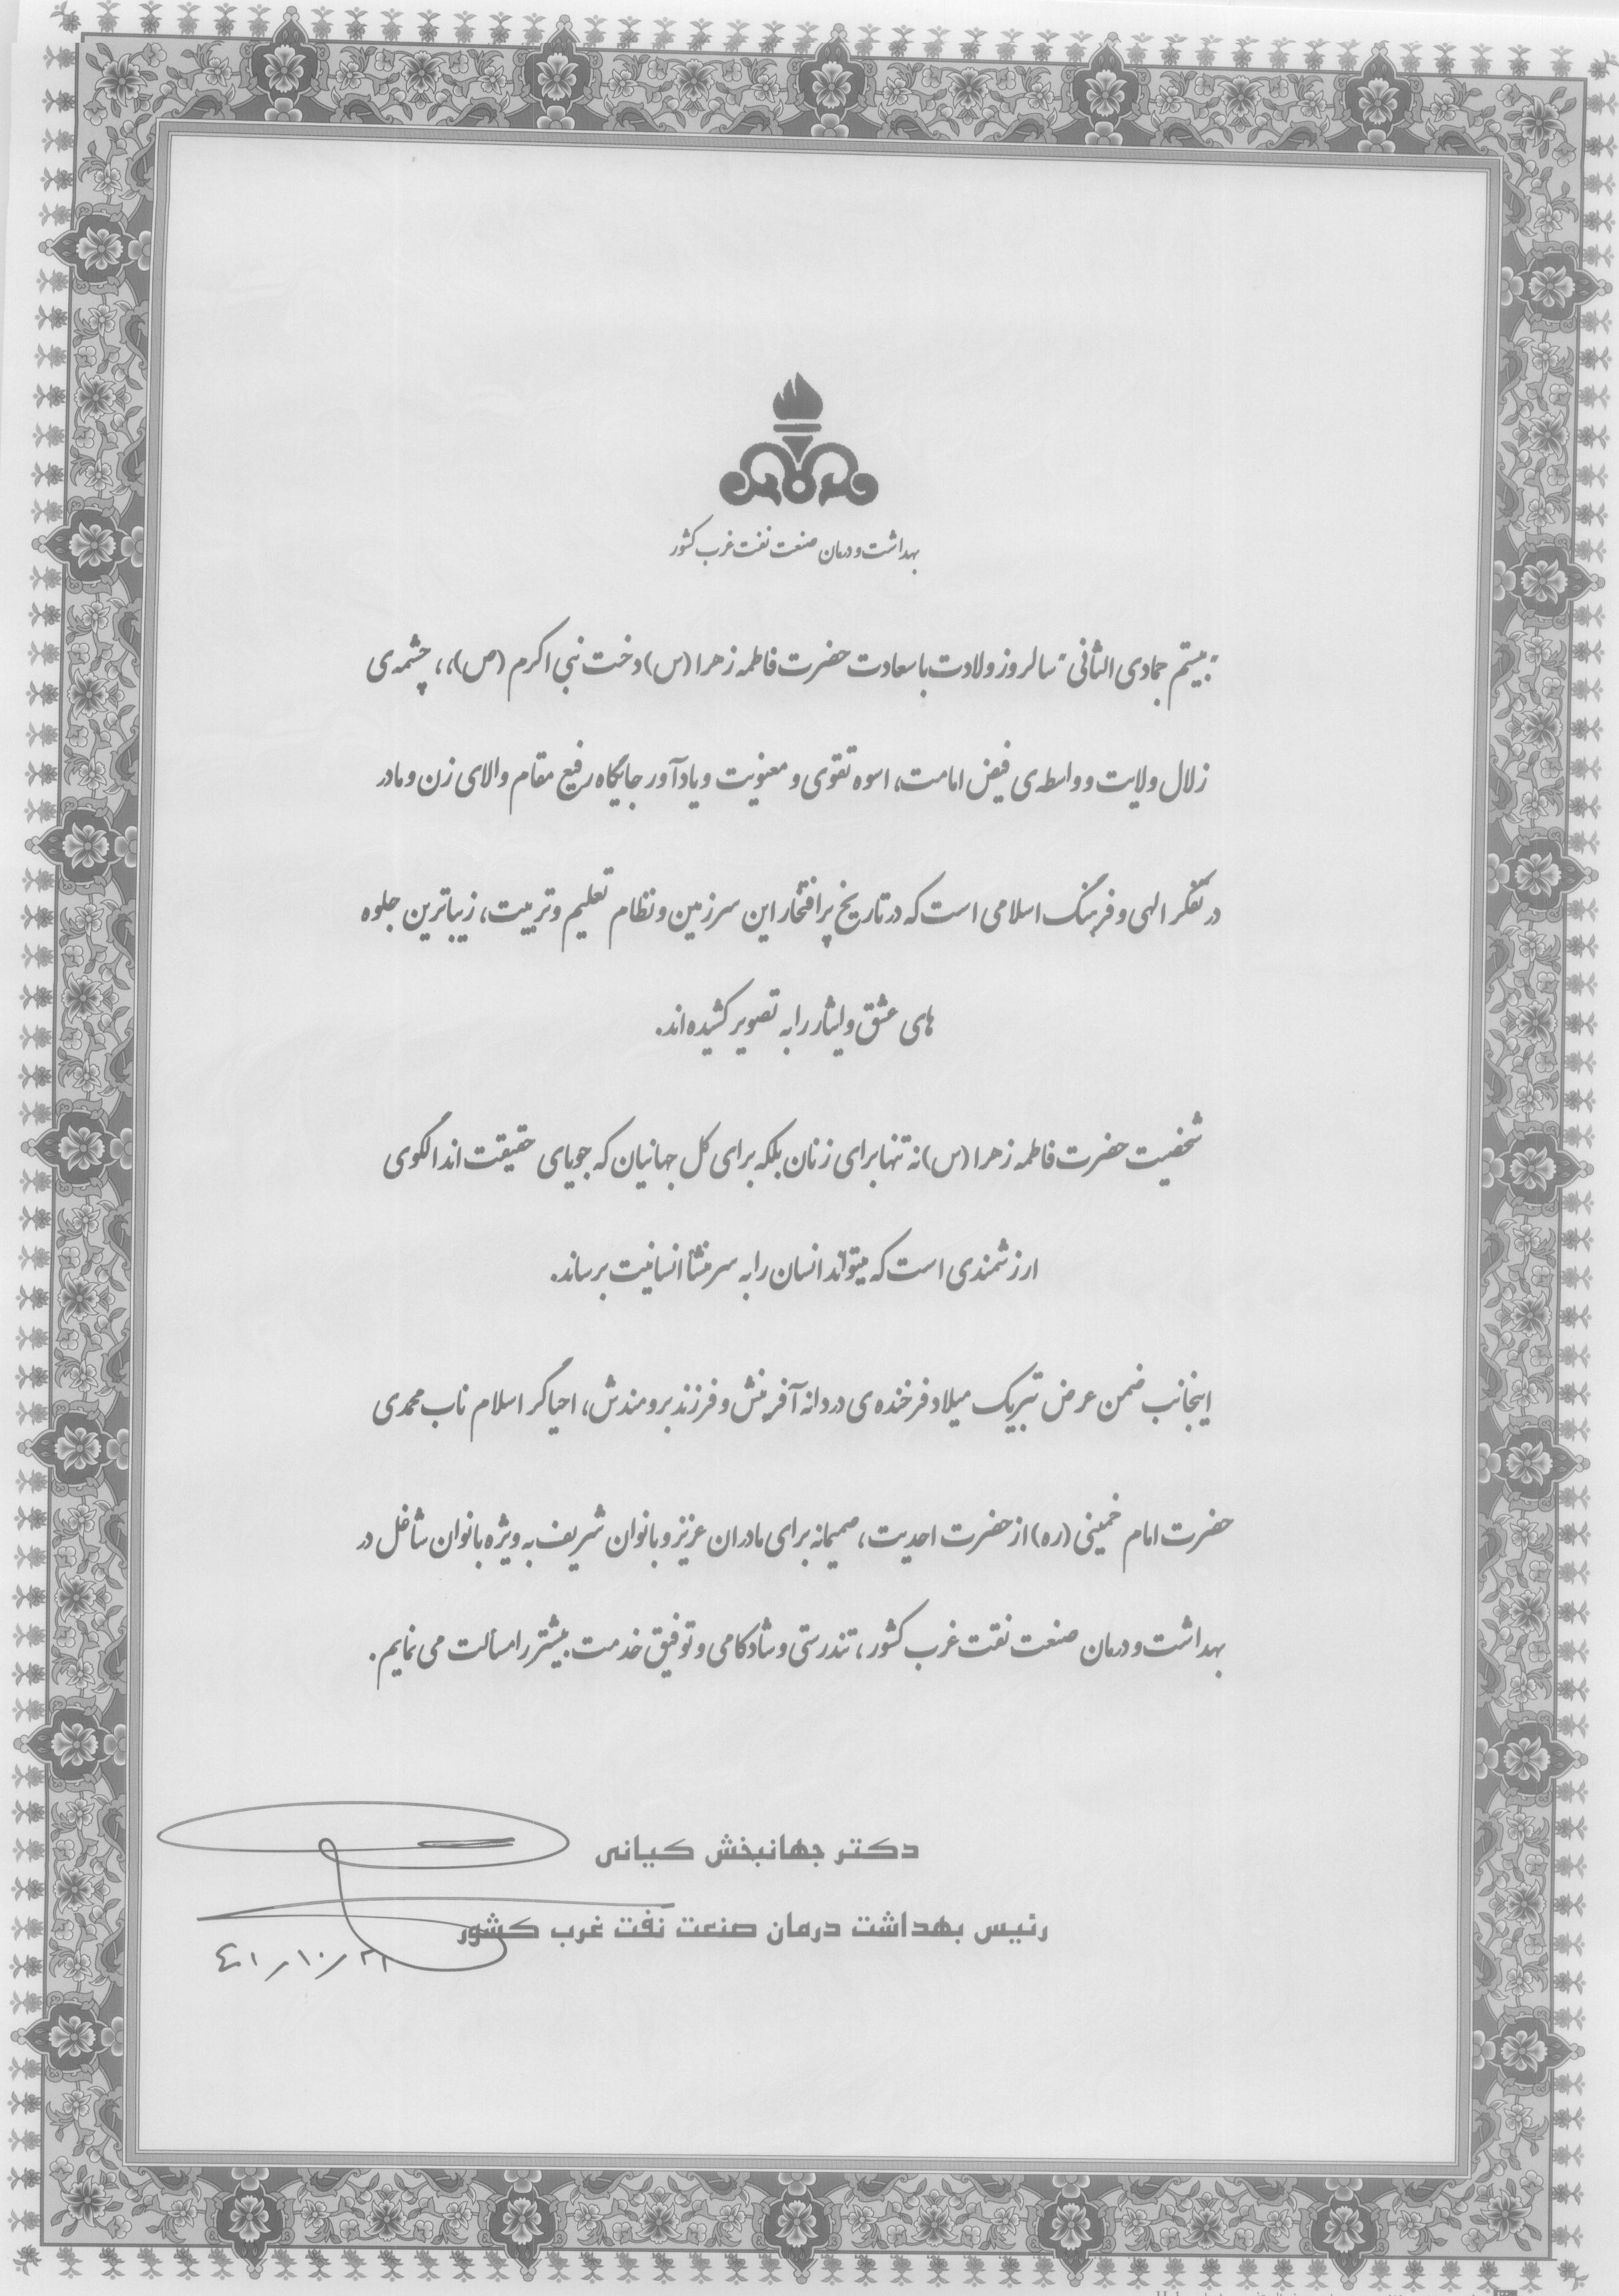 بهداشت و درمان صنعت نفت غرب کشور
"بیستم جمادی الثانی" سالروز ولادت با سعادت حضرت فاطمه زهرا (س) دخت نبی اکرم (ص)،، چشمه ی
زلال ولایت و واسطه ی فیض امامت، اسوه تقوی و معنویت و یادآور جایگاه رفیع مقام والای زن و مادر
در تفکر الهی و فرهنگ اسلامی است که در تاریخ پر افتخار این سرزمین و نظام تعلیم و تربیت، زیباترین جلوه
های عشق و ایثار را به تصویر کشیده اند.
شخصیت حضرت فاطمه زهرا (س) نه تنها برای زنان بلکه برای کل جهانیان که جویای حقیقت اند الگوی
ارزشمندی است که میتواند انسان را به سر منشأ انسانیت برساند.
اینجانب ضمن عرض تبریک میلاد فرخنده ی دردانه آفرینش و فرزند برومندش، احیاگر اسلام ناب محمدی
حضرت امام خمینی (ره) از حضرت احدیت، صمیمانه برای مادران عزیز و بانوان شریف به ویژه بانوان شاغل در
بهداشت و درمان صنعت نفت غرب کشور، تندرستی و شادکامی و توفیق خدمت بیشتر را مسألت می نمایم.
دکتر جهانبخش کیانی
رئیس بهداشت درمان صنعت نفت غرب کشور